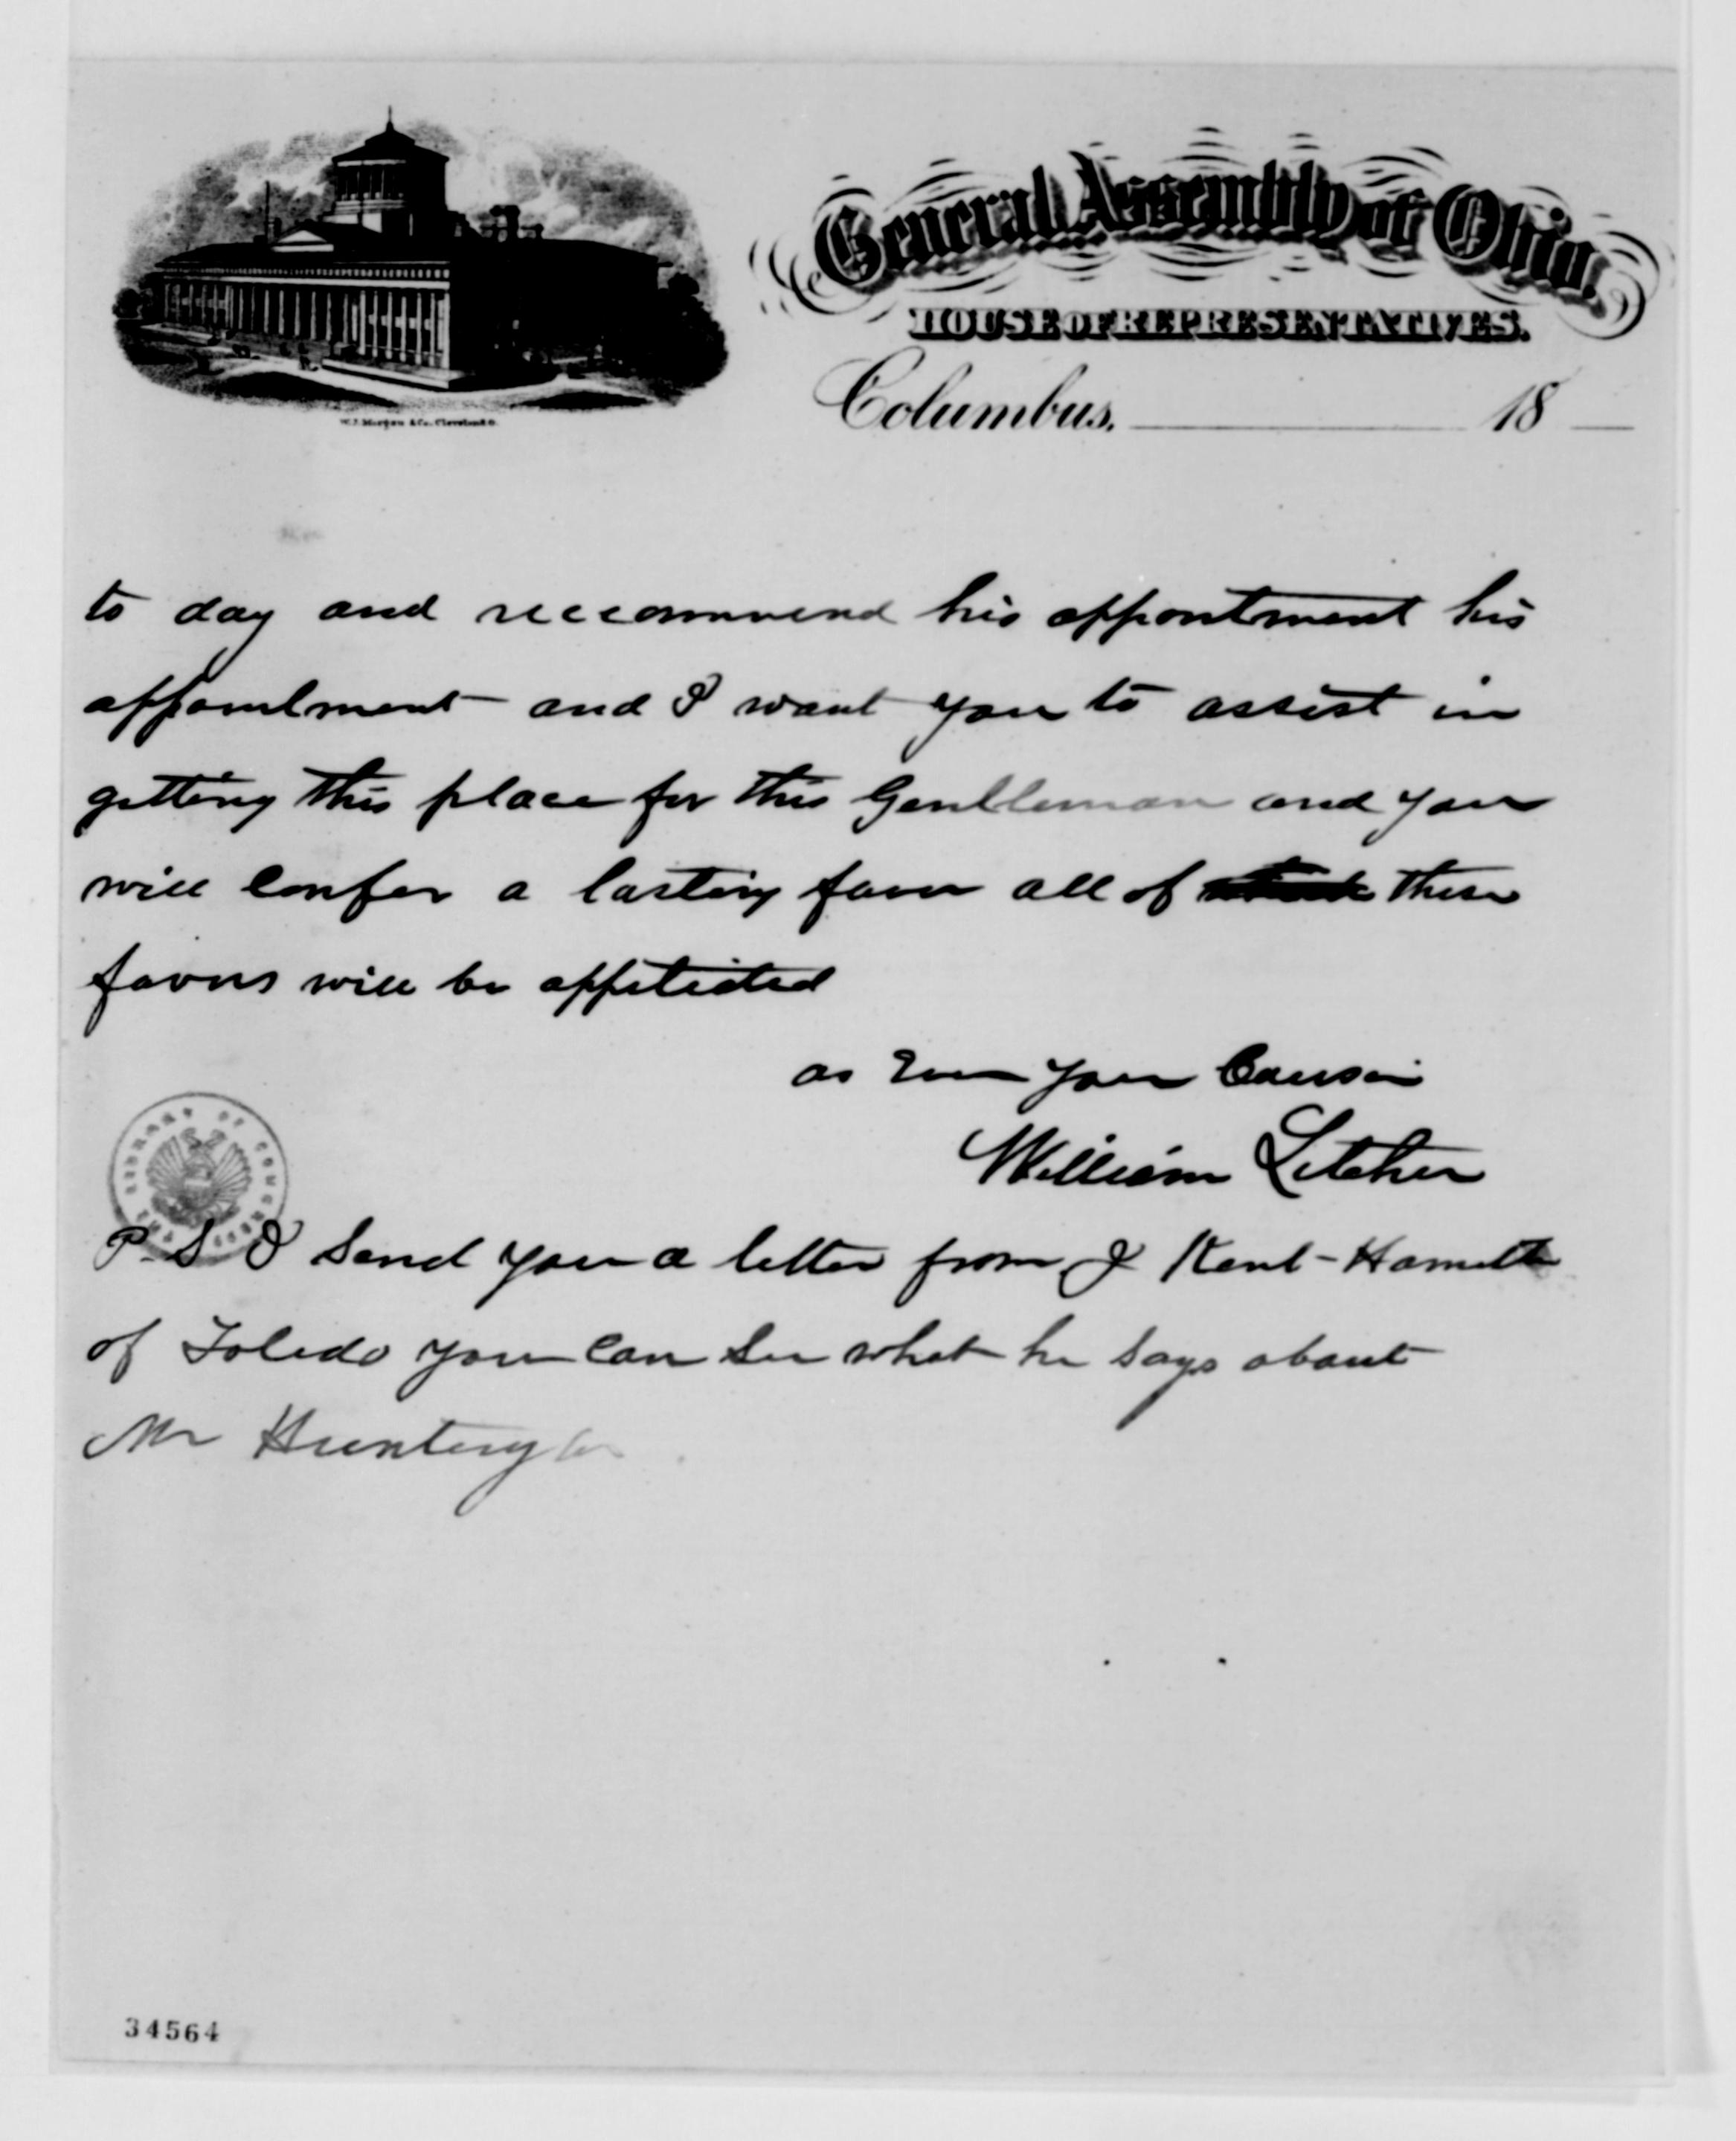 General Assembly of Ohio,
HOUSE OF REPRESENTATIVES.
Columbus, 18
W.J. Morgan & Co. Cleveland O.
to day and reccommend his appontment his
appointment and I want you to assist in
getting this place for this Gentleman and you
will confer a lasting favor all of these
favors will be appritiated
as Ever your Cousin
William Letcher
THE LIBRARY OF CONGRESS
P. S I Send you a letter from J Kent Hamilton
of Toledo you can See what he Says about
Mr Huntington
34564